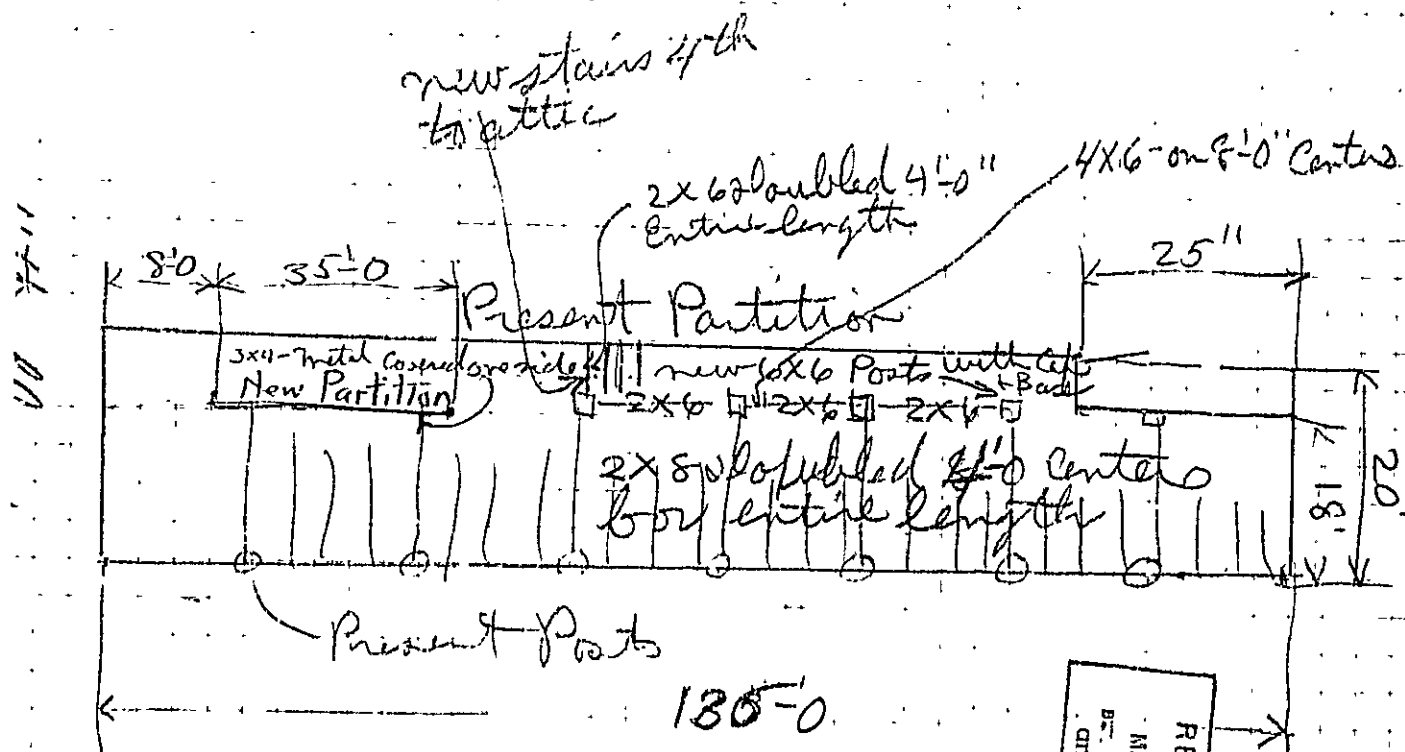 new stairs 4th
to attic
2X6 doubled 4'-0"
Entire length
4X6-on 8'-0" Centers
8'-0
35'-0
25"
Present Partition
3x4-metal covered one side
New Partition
new 6X6 Posts with Cap
Base
2X6 2X6 2X6
2X8 doubled
Centers
for entire length
18'
20'
Present Posts
RE
M